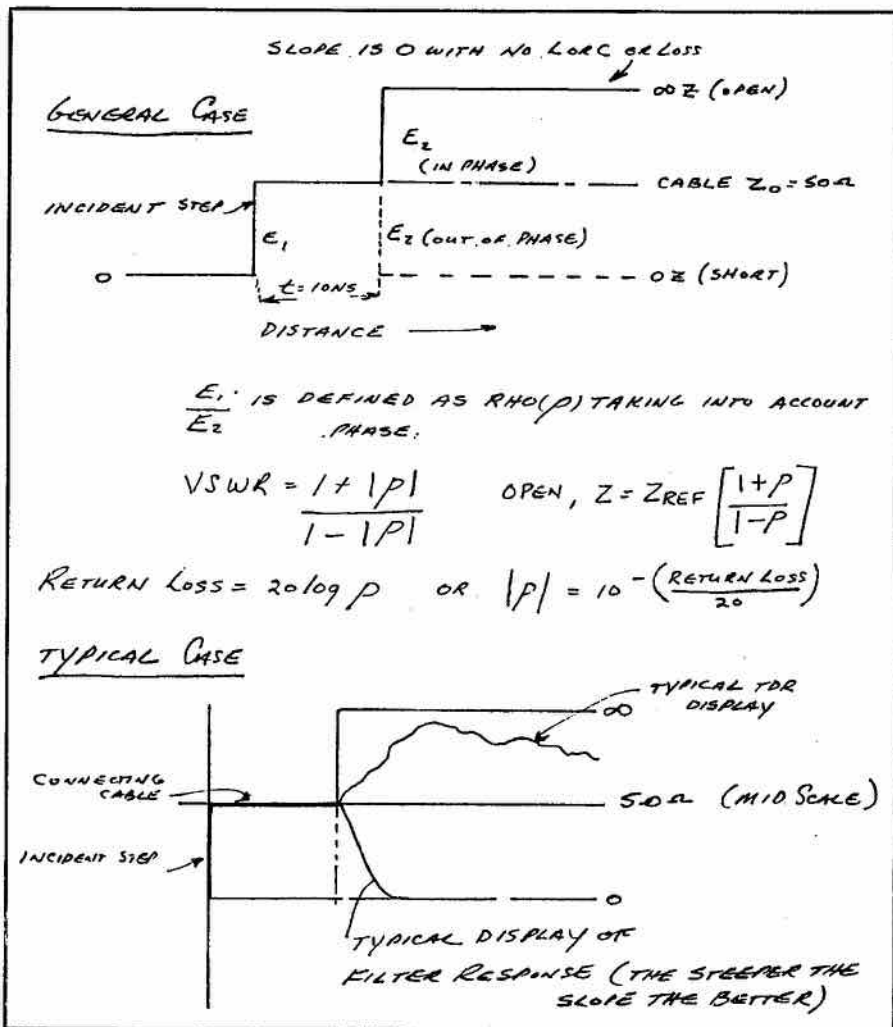 SLOPE IS 0 WITH NO L OR C OR LOSS
∞ Z (OPEN)
GENERAL CASE
E2
(IN PHASE)
CABLE Z0 = 50Ω
INCIDENT STEP
E1
E2 (OUT OF PHASE)
0
0 Z (SHORT)
t = 10NS
DISTANCE
E1/E2 IS DEFINED AS RHO(ρ) TAKING INTO ACCOUNT
PHASE.
VSWR = (1 + |ρ|)/(1 - |ρ|) OPEN, Z = ZREF [(1+ρ)/(1-ρ)]
RETURN LOSS = 20 log ρ OR |ρ| = 10^-(RETURN LOSS/20)
TYPICAL CASE
TYPICAL TDR
DISPLAY
∞
CONNECTING
CABLE
50Ω (MID SCALE)
INCIDENT STEP
0
TYPICAL DISPLAY OF
FILTER RESPONSE (THE STEEPER THE
SLOPE THE BETTER)